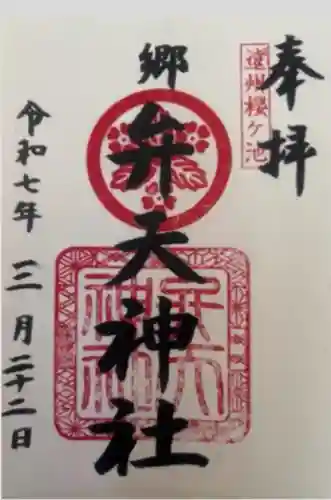 奉拝
遠州櫻ヶ池
郷
弁天神社
弁天
神社
令和七年三月二十二日